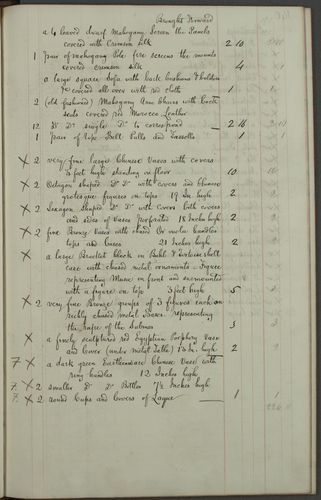 Brought Forward
a 4 leaved dwarf Mahogany Screen the Panels
covered with Crimson Silk 2 10
1 Pair of mahogany Pole fire screens the mounts
covered crimson silk 4
a large square Sofa with back Cushions & bolsters
covered all over with red cloth 1 1
2 (old fashioned) Mahogany Arm Chairs with back
seats covered red Morocco Leather
12 Do Do single Do to correspond 2 16
1 pair of Bell Pulls and Tassells 1
X 2 very fine large Chinese Vases with covers
feet high standing on floor 10 10
X 2 Octagon shaped Do Do with covers and Chinese
grotesque figures on tops 19 In high 2
X 2 Hexagon Shaped Do Do with covers both covers
and sides of Vases perforated 18 Inches high 2
X 2 fine Bronze Vases with chased handles
tops and bases 21 Inches high 2
X a large Bracket Clock in Buhl & tortoise shell
case with chased metal ornaments a Figure
representing Music in front and surmounted
with a figure on top 3 feet high 5
X 2 very fine Bronze groups of 3 figures each on
richly chased metal Bases representing
the rape of the Sabines 3 3
X a finely sculptured red Egyptian Porphyry Vase
and Cover (under metal Table) 15 In. high 2 2
7 X a dark green Earthenware Chinese Vase with
ring handles 12 Inches high
7. X 2 smaller Do Do Bottles 7½ Inches high
7. X 2 round Cups and Covers of Laque 1 1